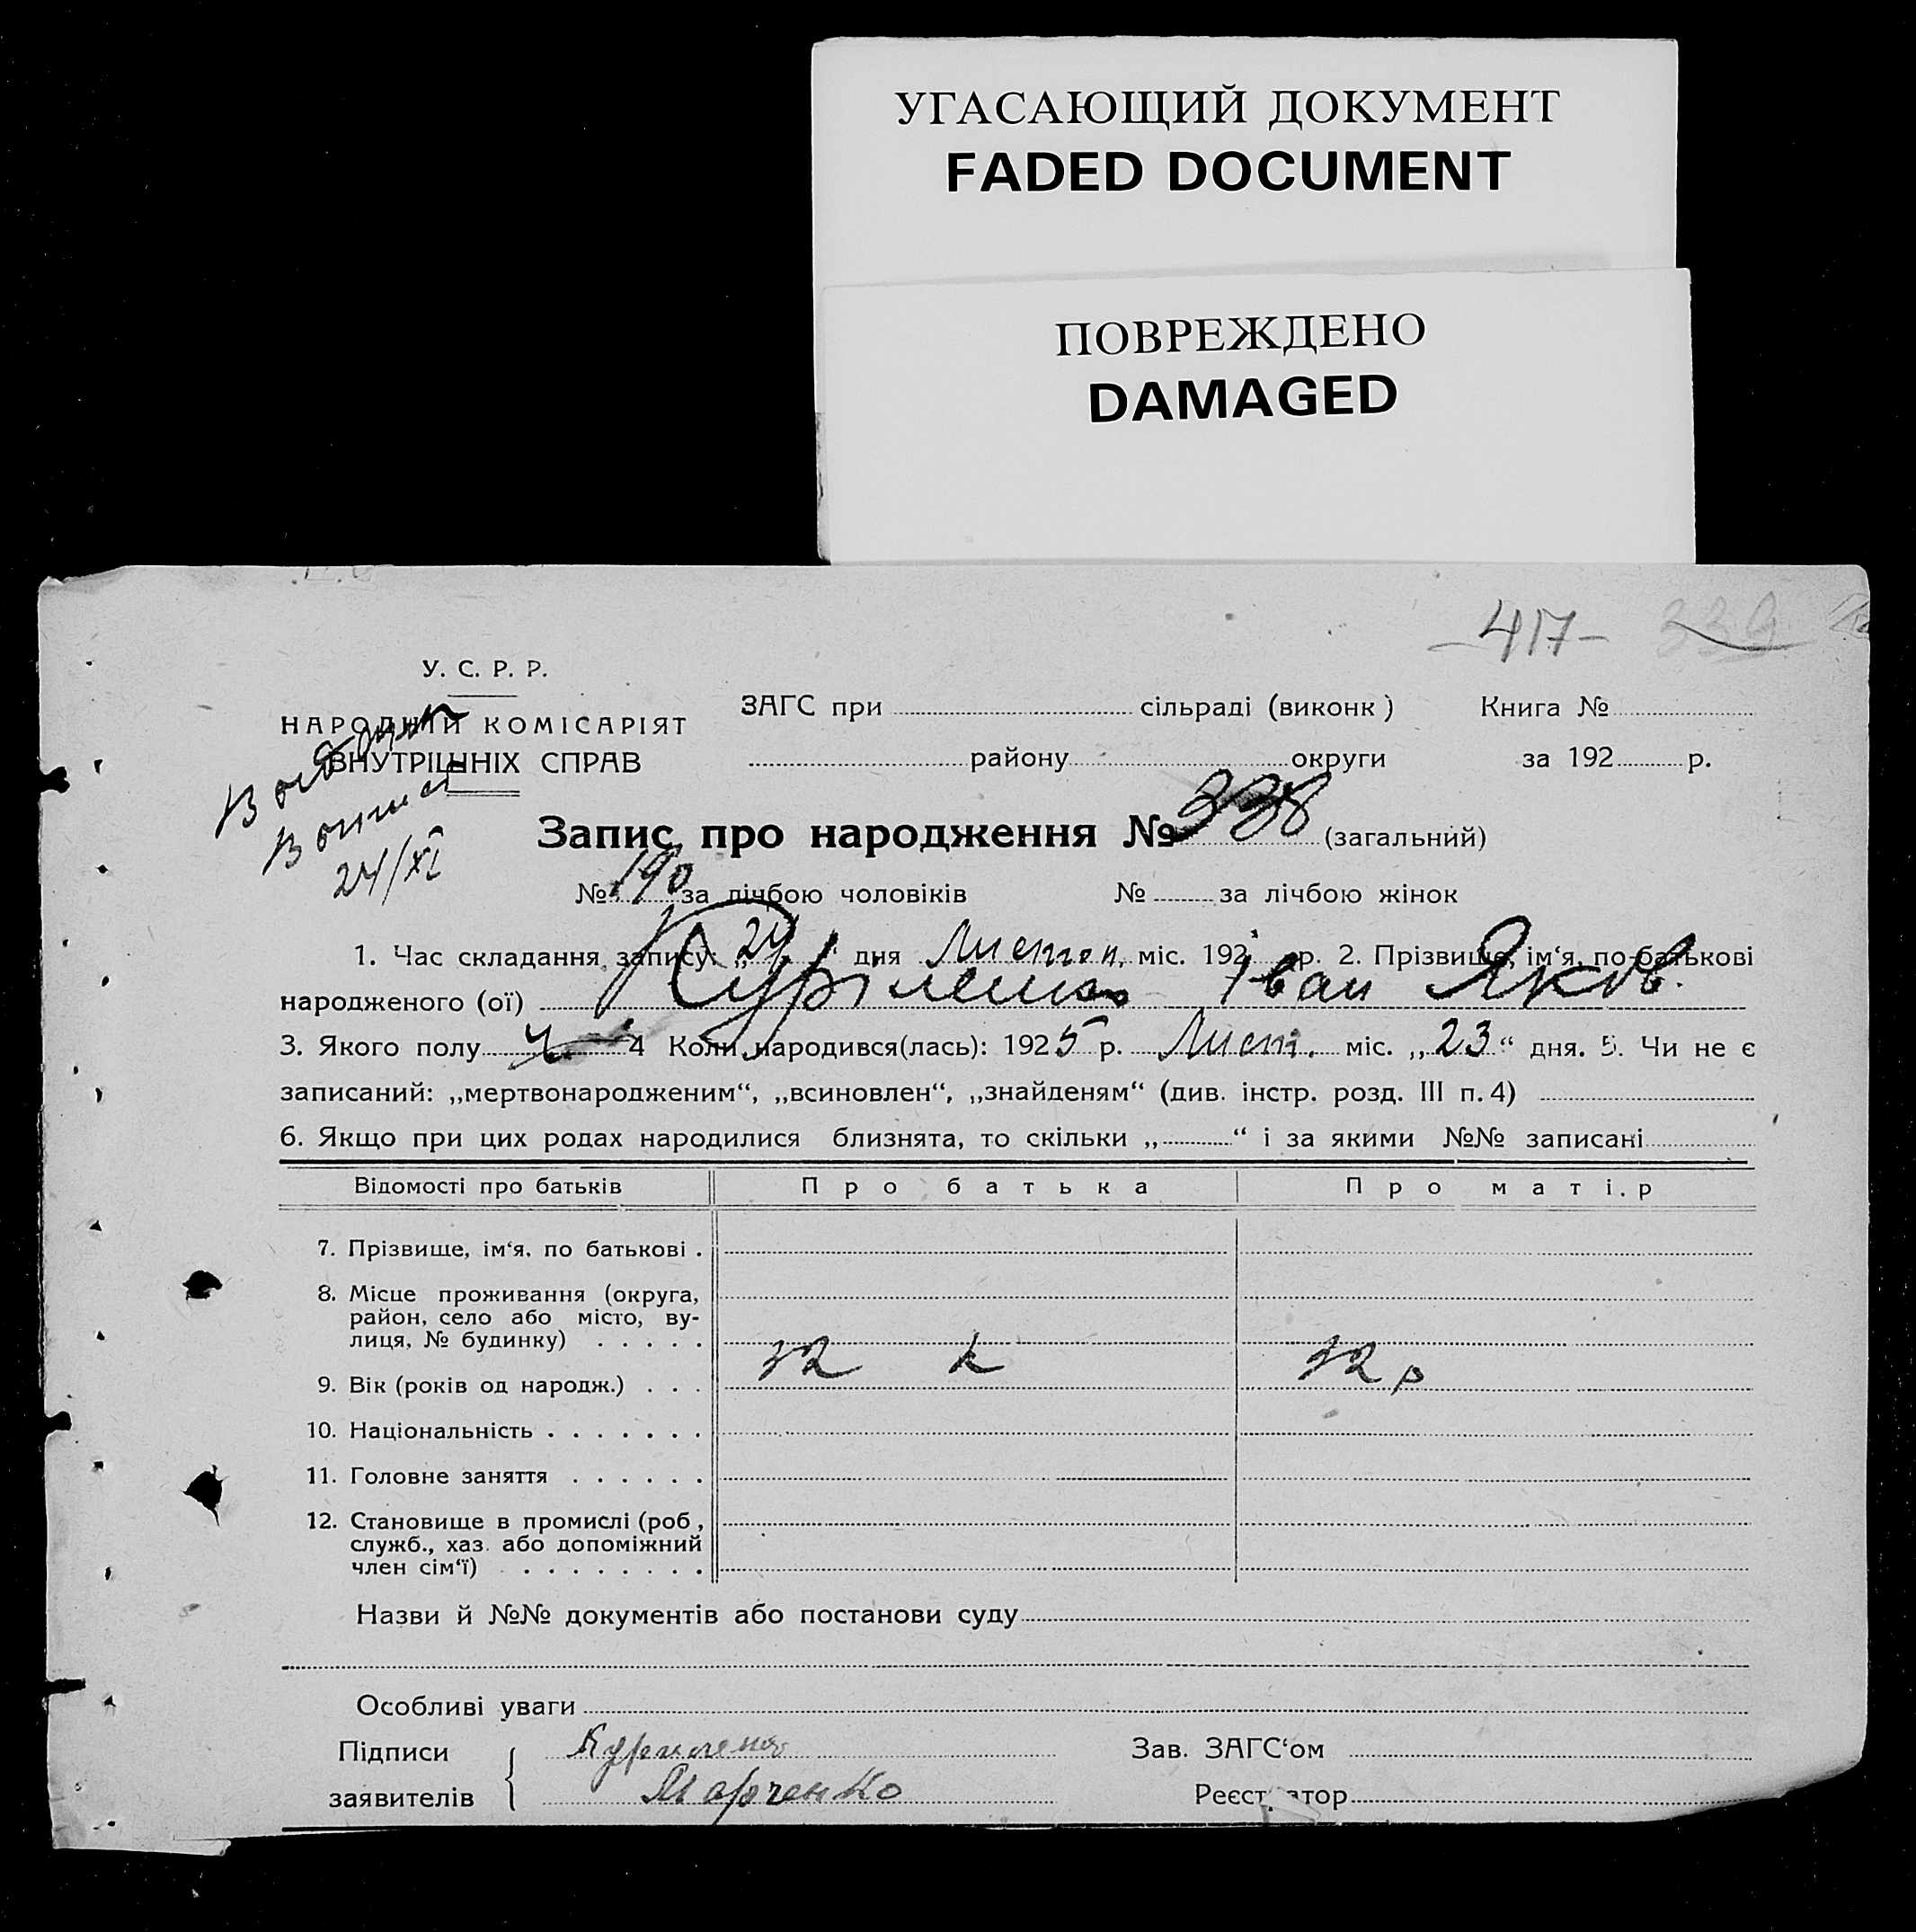 УГАСАЮЩИЙ ДОКУМЕНТ
FADED DOCUMENT
ПОВРЕЖДЕНО
DAMAGED
-417- 339
У. С. Р. Р.
НАРОДНІЙ КОМІСАРІЯТ
ВНУТРІШНІХ СПРАВ
ЗАГС при сільраді (виконк) Книга №
району округи за 192 р.
24/XI
Запис про народження № 338 (загальний)
№ 190 за лічбою чоловіків № за лічбою жінок
1. Час складання запису: „24“ дня Листоп. міс. 192 р. 2. Прізвище, ім‘я, по-батькові
народженого (ої) Куріленко Іван Яков.
3. Якого полу ч. 4 Коли народився(лась): 1925 р. Лист. міс. „23“ дня. 5. Чи не є
записаний: „мертвонародженим“, „всиновлен“, „знайденям“ (див. інстр. розд. III п. 4)
6. Якщо при цих родах народилися близнята, то скільки „ “ і за якими №№ записані
Відомості про батьків Про батька Про матір
7. Прізвище, ім‘я, по батькові .
8. Місце проживання (округа,
район, село або місто, ву-
лиця, № будинку) . . . . .
9. Вік (років од народж.) . . . 32 32 р
10. Національність . . . . . . .
11. Головне заняття . . . . . .
12. Становище в промислі (роб,
служб., хаз. або допоміжний
член сім‘ї) . . . . . . . .
Назви й №№ документів або постанови суду
Особливі уваги
Підписи Куриленко Зав. ЗАГС‘ом
заявителів Марченко Реєстратор